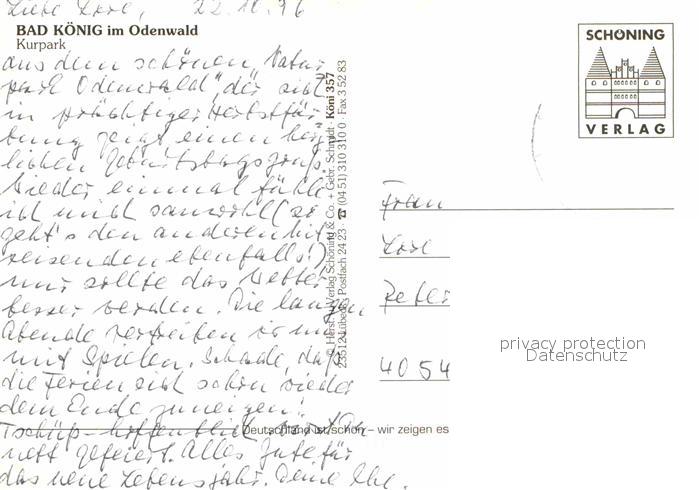 Liebe Lore, 22.10.96
BAD KÖNIG im Odenwald
Kurpark
aus dem schönen „Natur-
park Odenwald“, der sich
in prächtiger Herbstfär-
bung zeigt einen herz-
lichen Geburtstagsgruß.
Wieder einmal fühle
ich mich sauwohl (so
geht's den anderen Mit-
reisenden ebenfalls!)
nur sollte das Wetter
besser werden. Die langen
Abende vertreiben wir uns
mit Spielen. Schade, daß
die Ferien sich schon wieder
dem Ende zuneigen!
Tschüß – hoffentlich
nett gefeiert. Alles Gute für
das neue Lebensjahr. Deine
Deutschland ist schön – wir zeigen es
© Herst.: Verlag Schöning & Co. + Gebr. Schmidt · Köni 357
23512 Lübeck, Postfach 24 23 · ☎ (04 51) 310 310 0 · Fax 3 52 83
SCHÖNING
VERLAG
Frau
Lore
Peter
4054
privacy protection
Datenschutz